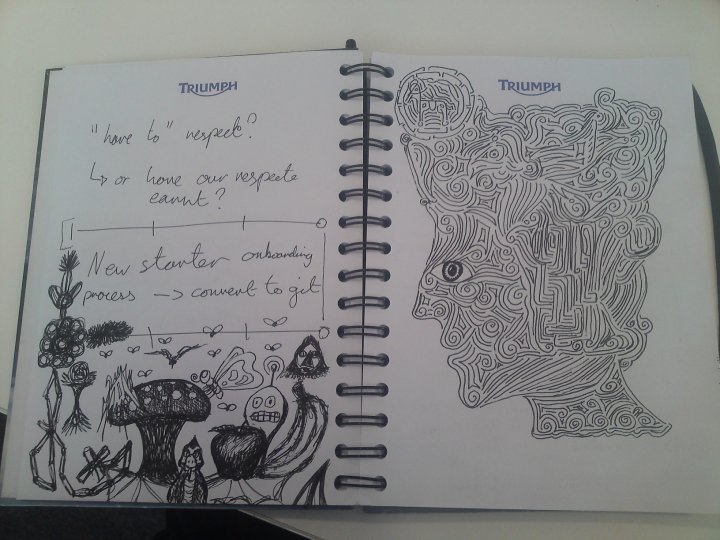 TRIUMPH
"have to" respect?
↳ or have our respects
earnt?
New starter onboarding
process → convert to git
TRIUMPH